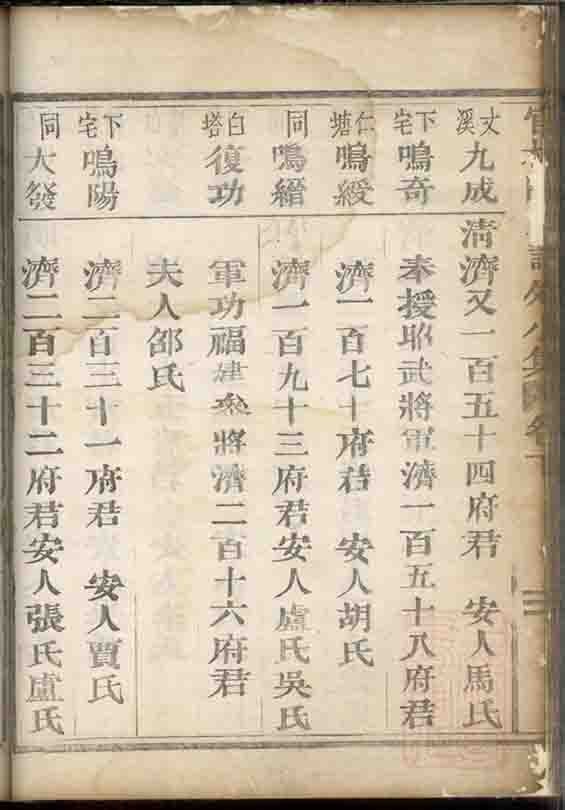 文溪 九成 清濟又一百五十四府君 安人馬氏
下宅 鳴奇 奉授昭武將軍濟一百五十八府君
仁塘 鳴綬 濟一百七十府君 安人胡氏
同 鳴縉 濟一百九十三府君安人盧氏吳氏
白塔 復功 軍功福建叅將濟二百十六府君
夫人邵氏
下宅 鳴陽 濟二百三十一府君 安人賈氏
同 大發 濟二百三十二府君安人張氏盧氏